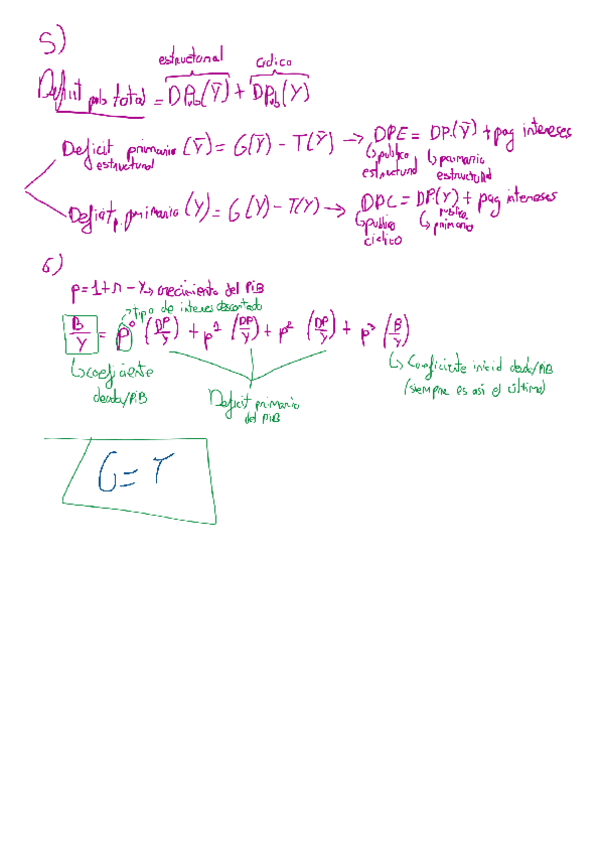 5)
estructural cíclico
Deficit pub total = DPub(Ȳ) + DPub(Y)
Deficit primario (Ȳ) = G(Ȳ) - T(Ȳ) → DPE = DP.(Ȳ) + pag intereses
estructural ↳ publico estructural ↳ primario estructural
Deficit p. primario (Y) = G(Y) - T(Y) → DPC = DP(Y) + pag intereses
↳ publico ciclico ↳ publico primario
6)
p = 1 + r - Y → crecimiento del PiB
→ tipo de interes descontado
B/Y = p⁰ (DP/Y) + p¹ (DP/Y) + p² (DP/Y) + p³ (B/Y)
↳ coeficiente deuda/PiB
Deficit primario del PiB
↳ Coeficiente inicial deuda/PiB
(siempre es asi el último)
G = T